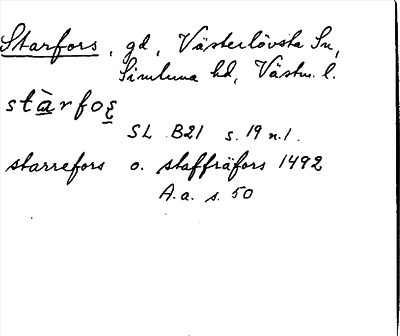 Starfors, gd, Västerlövsta Sn,
Simtuna hd, Västm. l.
stàrfoş
SL B21 s. 19 n. 1.
starrefors o. staffräfors 1492
A.a. s. 50